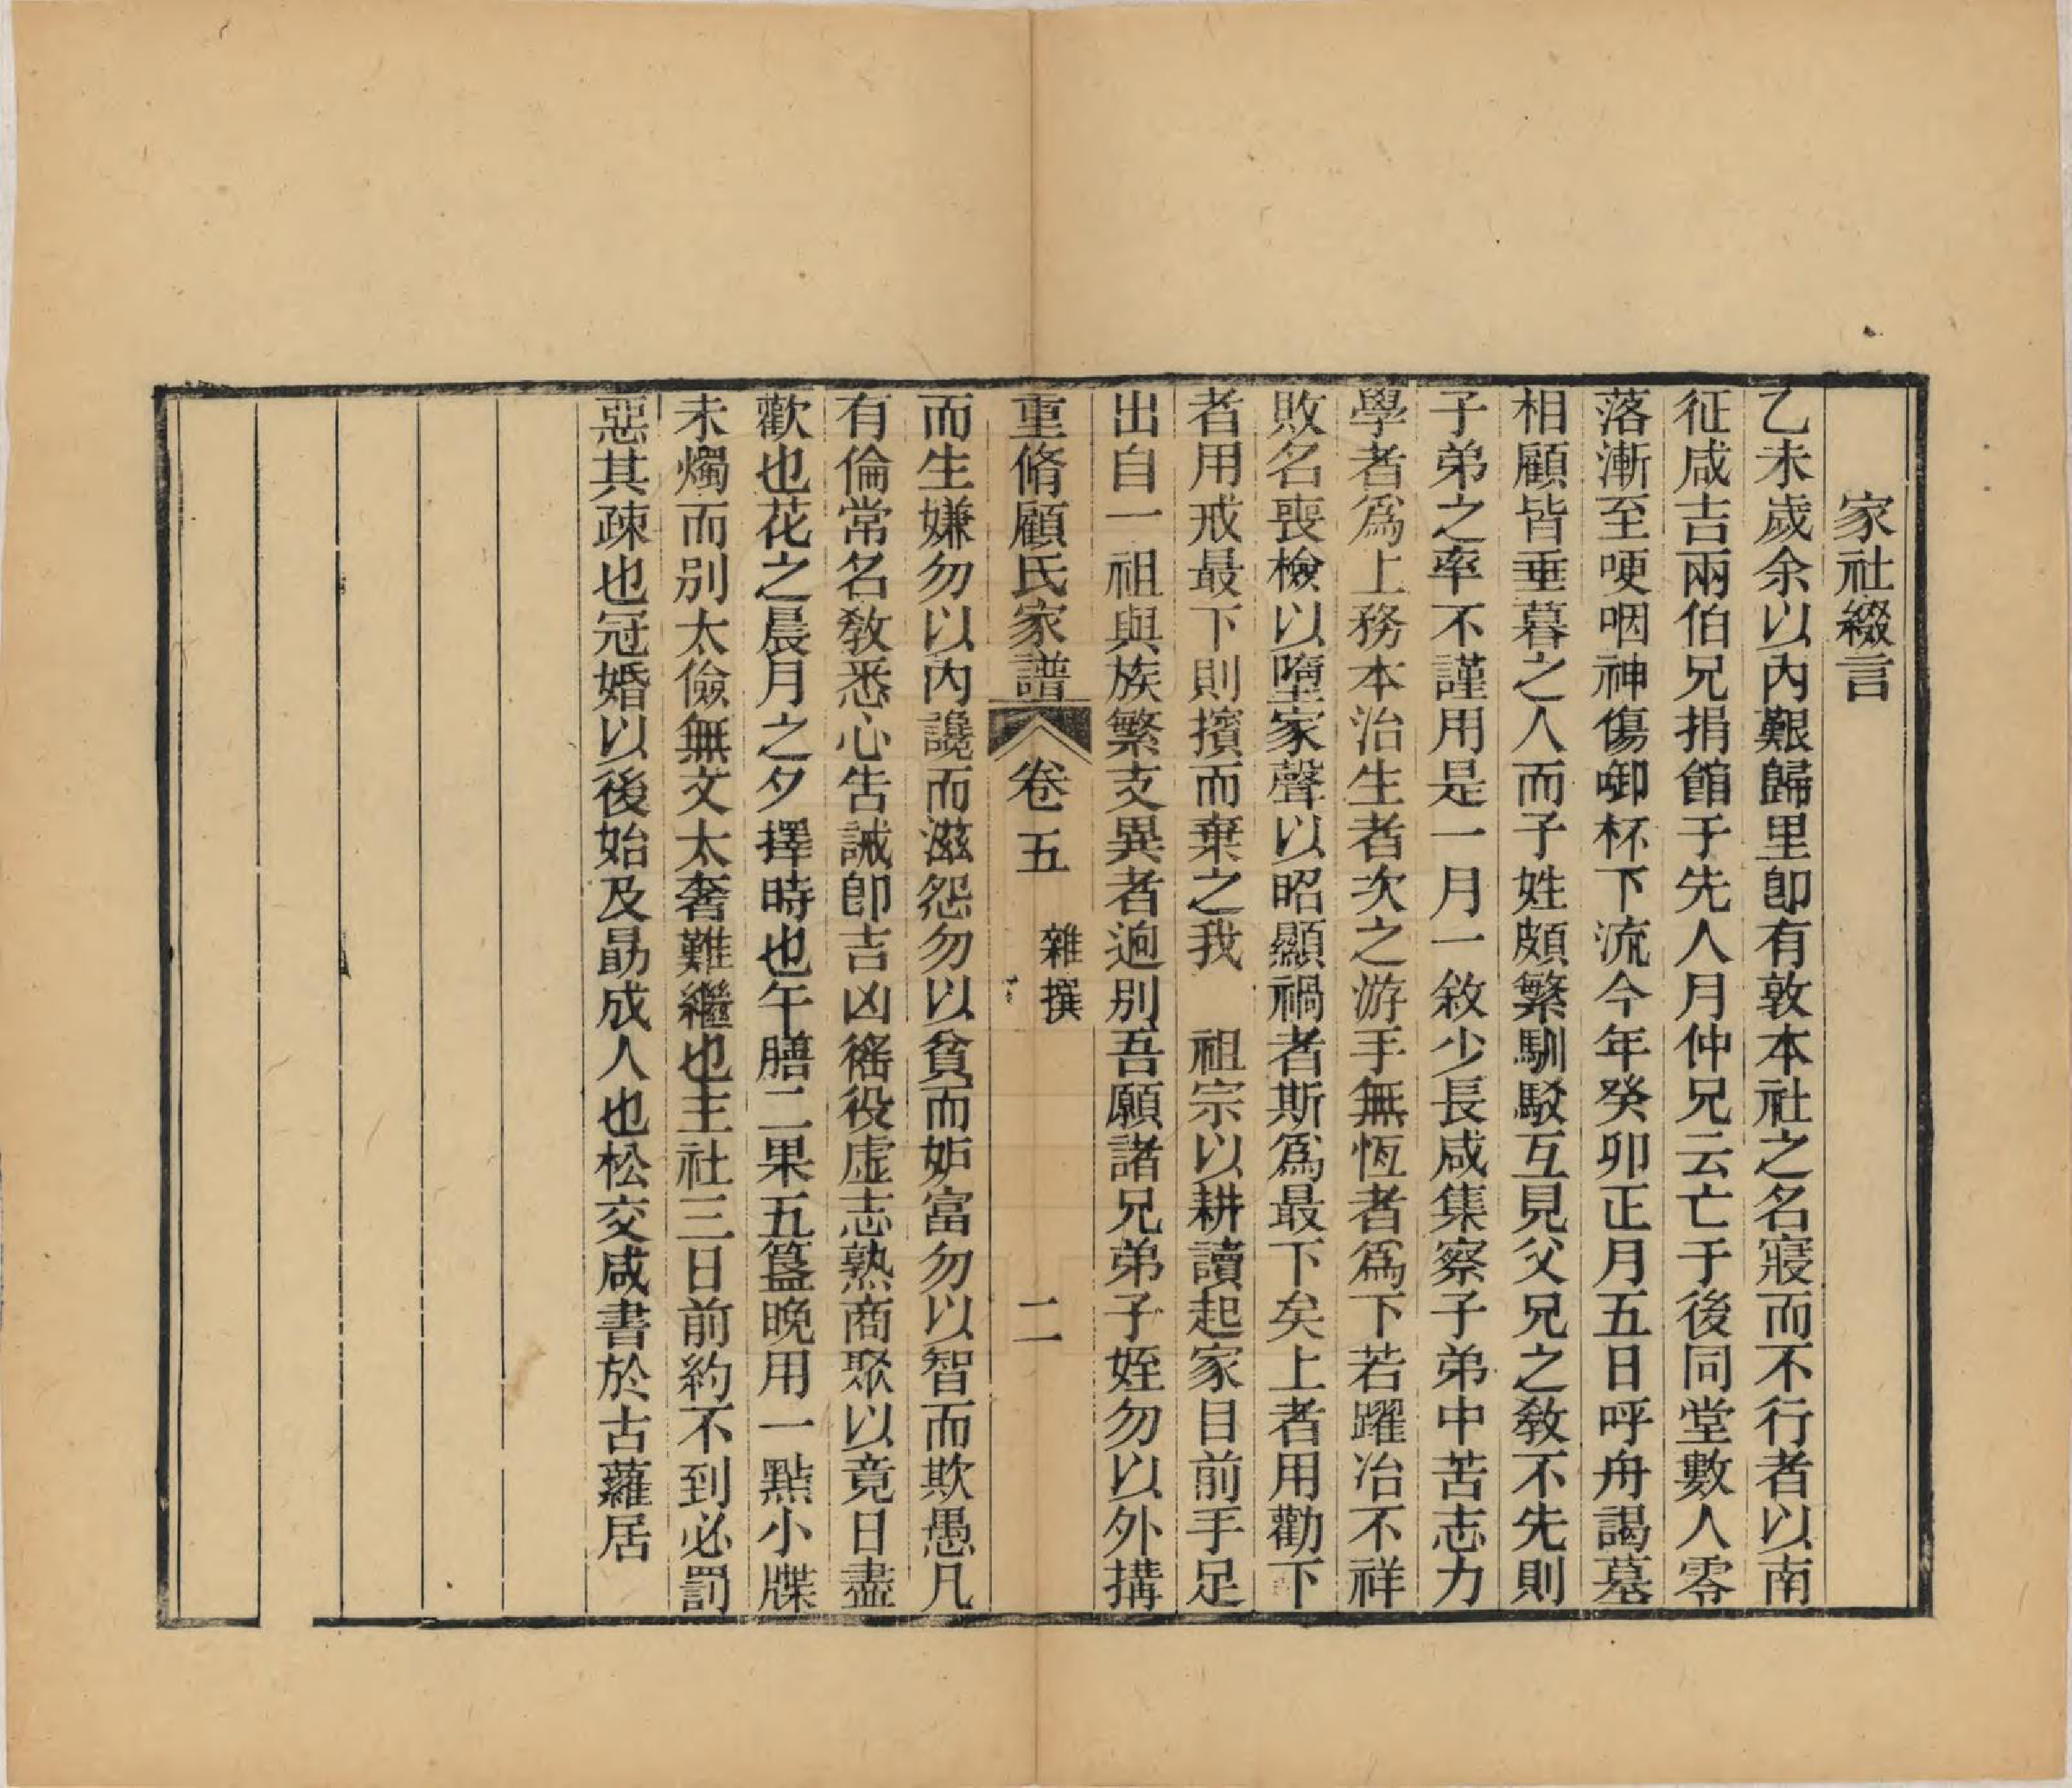 家社綴言
乙未歲余以內艱歸里卽有敦本社之名寢而不行者以南
征咸吉兩伯兄捐館于先人月仲兄云亡于後同堂數人零
落漸至哽咽神傷啣杯下流今年癸卯正月五日呼舟謁墓
相顧皆垂暮之人而子姓頗繁馴駁互見父兄之敎不先則
子弟之率不謹用是一月一敘少長咸集察子弟中苦志力
學者爲上務本治生者次之游手無恆者爲下若躍冶不祥
敗名喪檢以墮家聲以昭顯禍者斯爲最下矣上者用勸下
者用戒最下則擯而棄之我　祖宗以耕讀起家目前手足
出自一祖與族繁支異者逈别吾願諸兄弟子姪勿以外搆
重脩顧氏家譜　卷五　雜撰　二
而生嫌勿以內讒而滋怨勿以貧而妒富勿以智而欺愚凡
有倫常名敎悉心告誡卽吉凶徭役虛志熟商聚以竟日盡
歡也花之晨月之夕擇時也午膳二果五簋晚用一點小牒
未燭而别太儉無文太奢難繼也主社三日前約不到必罰
惡其疎也冠婚以後始及勗成人也松交咸書於古蘿居